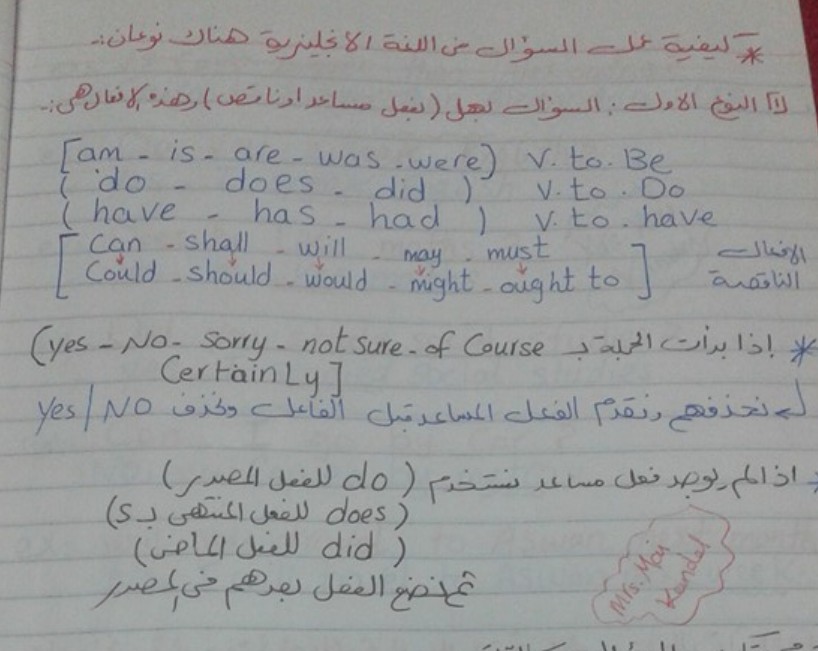 * كيفية عمل السؤال في اللغة الانجليزية هناك نوعان:-
1] النوع الاول: السؤال بهل (بفعل مساعد او ناقص) وهذه الافعال هى:-
[am - is - are - was - were) V. to. Be
( do - does - did ) V. to. Do
( have - has - had ) V. to. have
[ Can - shall - will - may - must الافعال
Could - should - would - might - ought to ] الناقصة
* إذا بدأت الجملة بـ (yes - No - Sorry - not sure - of Course
Certainly]
نحذفهم ونقدم الفعل المساعد قبل الفاعل ونحذف yes / NO
* اذا لم يوجد فعل مساعد نستخدم ( do للفعل المصدر)
( does للفعل المنتهى بـ s)
( did للفعل الماضى)
ثم نضع الفعل بعدهم في المصدر
Mrs. Mai
Kandel